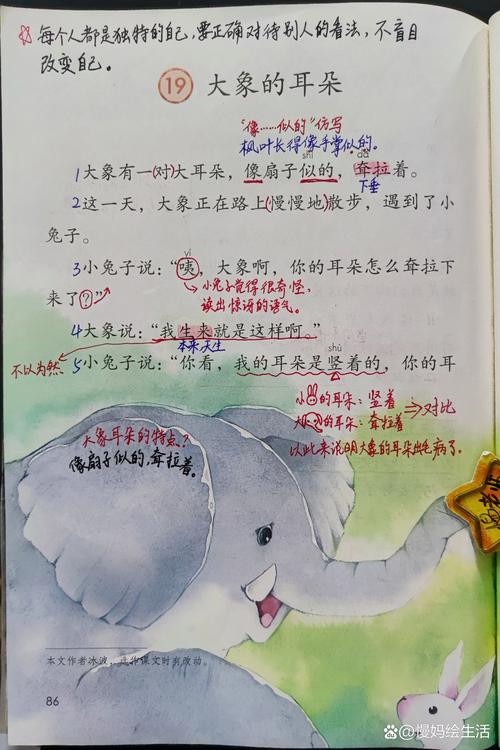 每个人都是独特的自己,要正确对待别人的看法,不盲目
改变自己。
19 大象的耳朵
“像……似的”仿写
枫叶长得像手掌似的。
shì dā
1大象有一(对)大耳朵,像扇子似的,耷拉着。
下垂
2这一天,大象正在路上(慢慢地)散步,遇到了小
兔子。
yí
3小兔子说:“咦,大象啊,你的耳朵怎么耷拉下
来了?”
小兔子觉得很奇怪,
读出惊讶的语气。
4大象说:“我生来就是这样啊。”
本来,天生
不以为然
shù
5小兔子说:“你看,我的耳朵是竖着的,你的耳
小的耳朵:竖着
大的耳朵:耷拉着
⇒对比
以此来说明大象的耳朵出毛病了。
大象耳朵的特点?
像扇子似的,耷拉着。
本文作者冰波,选作课文时有改动。
86
慢妈绘生活